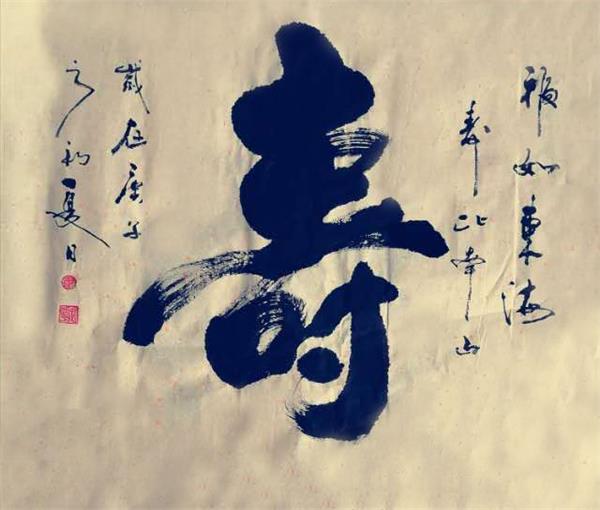 福如東海
寿比南山
壽
歲在庚子
之初夏月